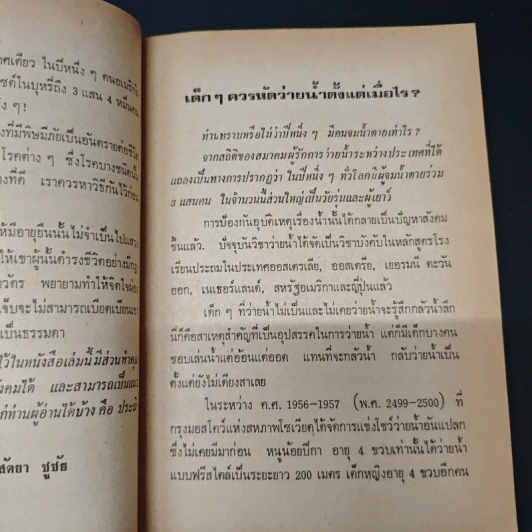 ศเดียว ในปีหนึ่ง ๆ คนอเมริกัน
ซดในบุหรี่ถึง 3 แสน 4 หมื่นคน
ๆ!
ที่มีพิษมีภัยเป็นอันตรายต่อชีวิต
โรคต่าง ๆ ซึ่งโรคบางชนิดนั้น
างที่ดี เราควรหาวิธีกันไว้ก่อน
ห้มีอายุยืนนั้นไม่จำเป็นไปแสวง
ให้เขาผู้นั้นดำรงชีวิตอย่างมีกฎ
วัตร พยายามทำให้จิตใจผ่อง
เจ็บจะไม่สามารถเบียดเบียนเขา
เป็นธรรมดา
ไว้ในหนังสือเล่มนี้มีส่วนทำคุณ
งคมได้ และสามารถเป็น
ก่ท่านผู้อ่านได้บ้าง คือ
สัตยา ชูชัย
เด็ก ๆ ควรหัดว่ายน้ำตั้งแต่เมื่อไร ?
ท่านทราบหรือไม่ว่าปีหนึ่ง ๆ มีคนจมน้ำตายเท่าไร ?
จากสถิติของสมาคมผู้รักการว่ายน้ำระหว่างประเทศที่ได้
แถลงเป็นทางการปรากฏว่า ในปีหนึ่ง ๆ ทั่วโลกมีผู้จมน้ำตายร่วม
3 แสนคน ในจำนวนนี้ส่วนใหญ่เป็นวัยรุ่นและผู้เยาว์
การป้องกันอุบัติเหตุเรื่องน้ำนั้นได้กลายเป็นปัญหาสังคม
ขึ้นแล้ว. ปัจจุบันวิชาว่ายน้ำได้จัดเป็นวิชาบังคับในหลักสูตรโรง
เรียนประถมในประเทศออสเตรเลีย, ออสเตรีย, เยอรมนี ตะวัน
ออก, เนเธอร์แลนด์, สหรัฐอเมริกาและญี่ปุ่นแล้ว
เด็ก ๆ ที่ว่ายน้ำไม่เป็นและไม่เคยว่ายน้ำจะรู้สึกกลัวน้ำลึก
นี่ก็คือสาเหตุสำคัญที่เป็นอุปสรรคในการว่ายน้ำ แต่ก็มีเด็กบางคน
ชอบเล่นน้ำแต่อ้อนแต่ออด แทนที่จะกลัวน้ำ กลับว่ายน้ำเป็น
ตั้งแต่ยังไม่เดียงสาเลย
ในระหว่าง ค.ศ. 1956–1957 (พ.ศ. 2499-2500) ที่
กรุงมอสโคว์แห่งสหภาพโซเวียตได้จัดการแข่งโชว์ว่ายน้ำอันแปลก
ซึ่งไม่เคยมีมาก่อน หนูน้อยบีกา อายุ 4 ขวบเท่านั้นได้ว่ายน้ำ
แบบฟรีสไตล์เป็นระยะยาว 200 เมตร เด็กหญิงอายุ 4 ขวบอีกคน